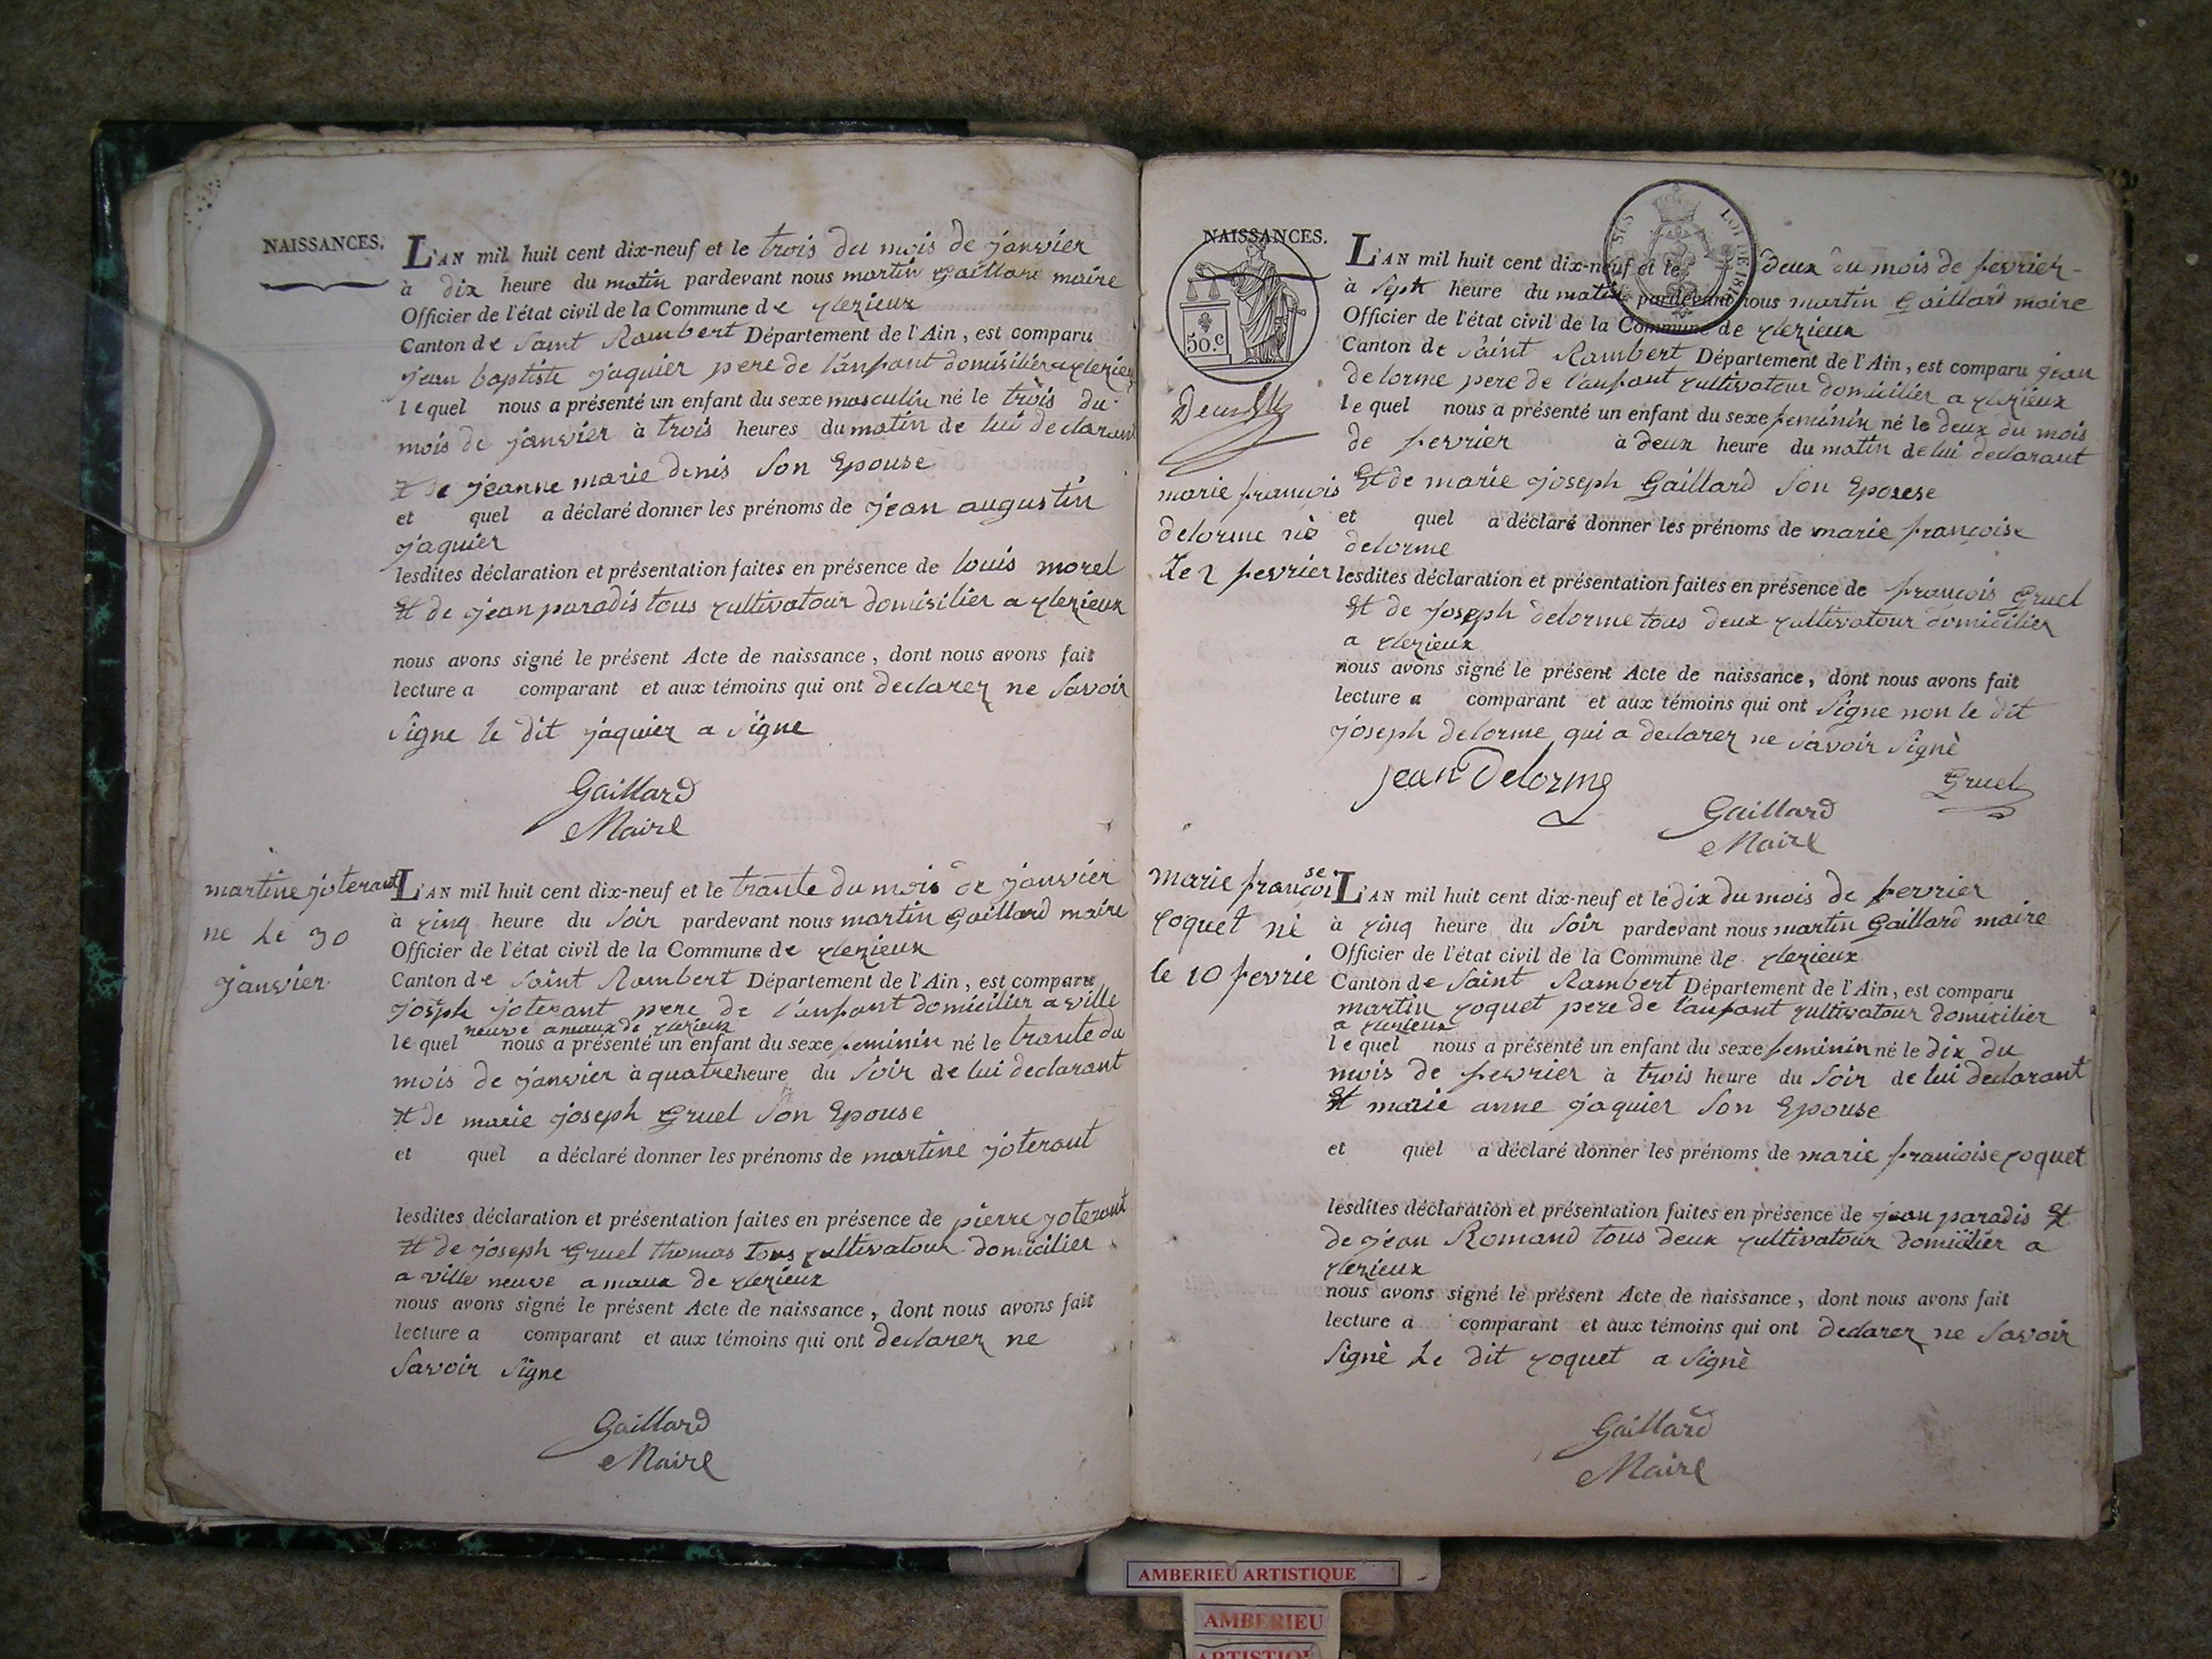 NAISSANCES.
L'AN mil huit cent dix-neuf et le trois du mois de janvier
à dix heure du matin pardevant nous martin Gaillard maire
Officier de l'état civil de la Commune de clezieux
Canton de Saint Rambert Département de l'Ain, est comparu
jean baptiste jaquier pere de l'anfant domisilier a clezieux
lequel nous a présenté un enfant du sexe masculin né le trois du
mois de janvier à trois heures du matin de lui declarant
Et de jeanne marie denis Son Epouse
et quel a déclaré donner les prénoms de jean augustin
jaquier
lesdites déclaration et présentation faites en présence de louis morel
Et de jean paradis tous cultivatour domisilier a clezieux
nous avons signé le présent Acte de naissance, dont nous avons fait
lecture a comparant et aux témoins qui ont declarez ne Savoir
Signe le dit jaquiez a Signe
Gaillard
Maire
martine joterant
ne Le 30
janvier
L'AN mil huit cent dix-neuf et le trante du mois de janvier
à cinq heure du Soir pardevant nous martin Gaillard maire
Officier de l'état civil de la Commune de clezieux
Canton de Saint Rambert Département de l'Ain, est comparu
joseph joterant pere de l'anfant domicilier a ville
neuve amaux de clezieux
lequel nous a présenté un enfant du sexe feminin né le trante du
mois de janvier à quatre heure du Soir de lui declarant
Et de marie joseph Gruel Son Epouse
et quel a déclaré donner les prénoms de martine joterant
lesdites déclaration et présentation faites en présence de pierre joterant
Et de joseph Gruel thomas tous cultivatour domicilier
a ville neuve amaux de clezieux
nous avons signé le présent Acte de naissance, dont nous avons fait
lecture a comparant et aux témoins qui ont declarez ne
Savoir Signe
Gaillard
Maire
NAISSANCES.
LOI DE 181
50.c
marie françois
delorme nè
Le 2 fevrier
L'AN mil huit cent dix-neuf et le deux du mois de fevrier
à Sept heure du matin pardevant nous martin Gaillard maire
Officier de l'état civil de la Commune de clezieux
Canton de Saint Rambert Département de l'Ain, est comparu jean
delorme pere de l'anfant cultivatour domicilier a clezieux
lequel nous a présenté un enfant du sexe feminin né le deux du mois
de fevrier à deux heure du matin de lui declarant
Et de marie joseph Gaillard Son Epouse
et quel a déclaré donner les prénoms de marie françoise
delorme
lesdites déclaration et présentation faites en présence de françois Gruel
Et de joseph delorme tous deux cultivatour domicilier
a clezieux
nous avons signé le présent Acte de naissance, dont nous avons fait
lecture a comparant et aux témoins qui ont Signe non le dit
joseph delorme qui a declarez ne Savoir Signè
jean Delorme
Gruel
Gaillard
Maire
marie françoise
coquet né
le 10 fevrie
L'AN mil huit cent dix-neuf et le dix du mois de fevrier
à cinq heure du Soir pardevant nous martin Gaillard maire
Officier de l'état civil de la Commune de clezieux
Canton de Saint Rambert Département de l'Ain, est comparu
martin coquet pere de l'anfant cultivatour domicilier
a clezieux
lequel nous a présenté un enfant du sexe feminin né le dix du
mois de fevrier à trois heure du Soir de lui declarant
Et marie anne jaquier Son Epouse
et quel a déclaré donner les prénoms de marie françoise coquet
lesdites déclaration et présentation faites en présence de jean paradis Et
de jean Romand tous deux cultivatour domicilier a
clezieux
nous avons signé le présent Acte de naissance, dont nous avons fait
lecture a comparant et aux témoins qui ont declarez ne Savoir
Signè Le dit coquet a Signè
Gaillard
Maire
AMBERIEU ARTISTIQUE
AMBERIEU
ARTISTIQUE